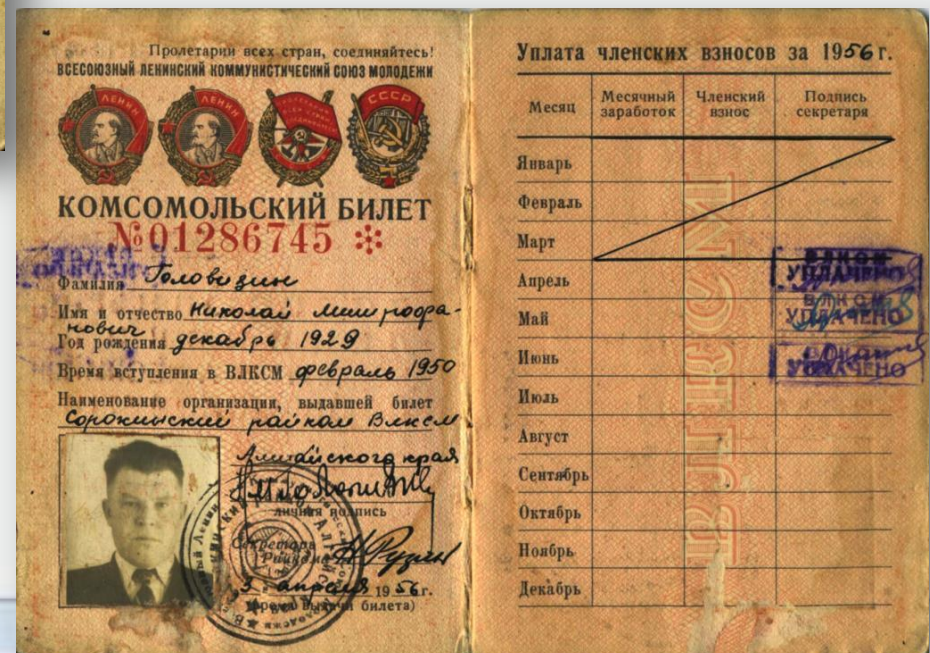 Пролетарии всех стран, соединяйтесь!
ВСЕСОЮЗНЫЙ ЛЕНИНСКИЙ КОММУНИСТИЧЕСКИЙ СОЮЗ МОЛОДЕЖИ
ЛЕНИН ЛЕНИН СССР
КОМСОМОЛЬСКИЙ БИЛЕТ
№ 01286745
Фамилия Головизин
Имя и отчество Николай Митрофа-
нович
Год рождения декабрь 1929
Время вступления в ВЛКСМ февраль 1950
Наименование организации, выдавшей билет
Сорокинский райком Влксм
Алтайского края
личная подпись
Секретарь
Райкома
5 апреля 1956 г.
(время выдачи билета)
Уплата членских взносов за 1956 г.
Месяц Месячный заработок Членский взнос Подпись секретаря
Январь
Февраль
Март
Апрель
Май
Июнь
Июль
Август
Сентябрь
Октябрь
Ноябрь
Декабрь
ВЛКСМ
УПЛАЧЕНО
ВЛКСМ
УПЛАЧЕНО
УПЛАЧЕНО
ВЛКСМ